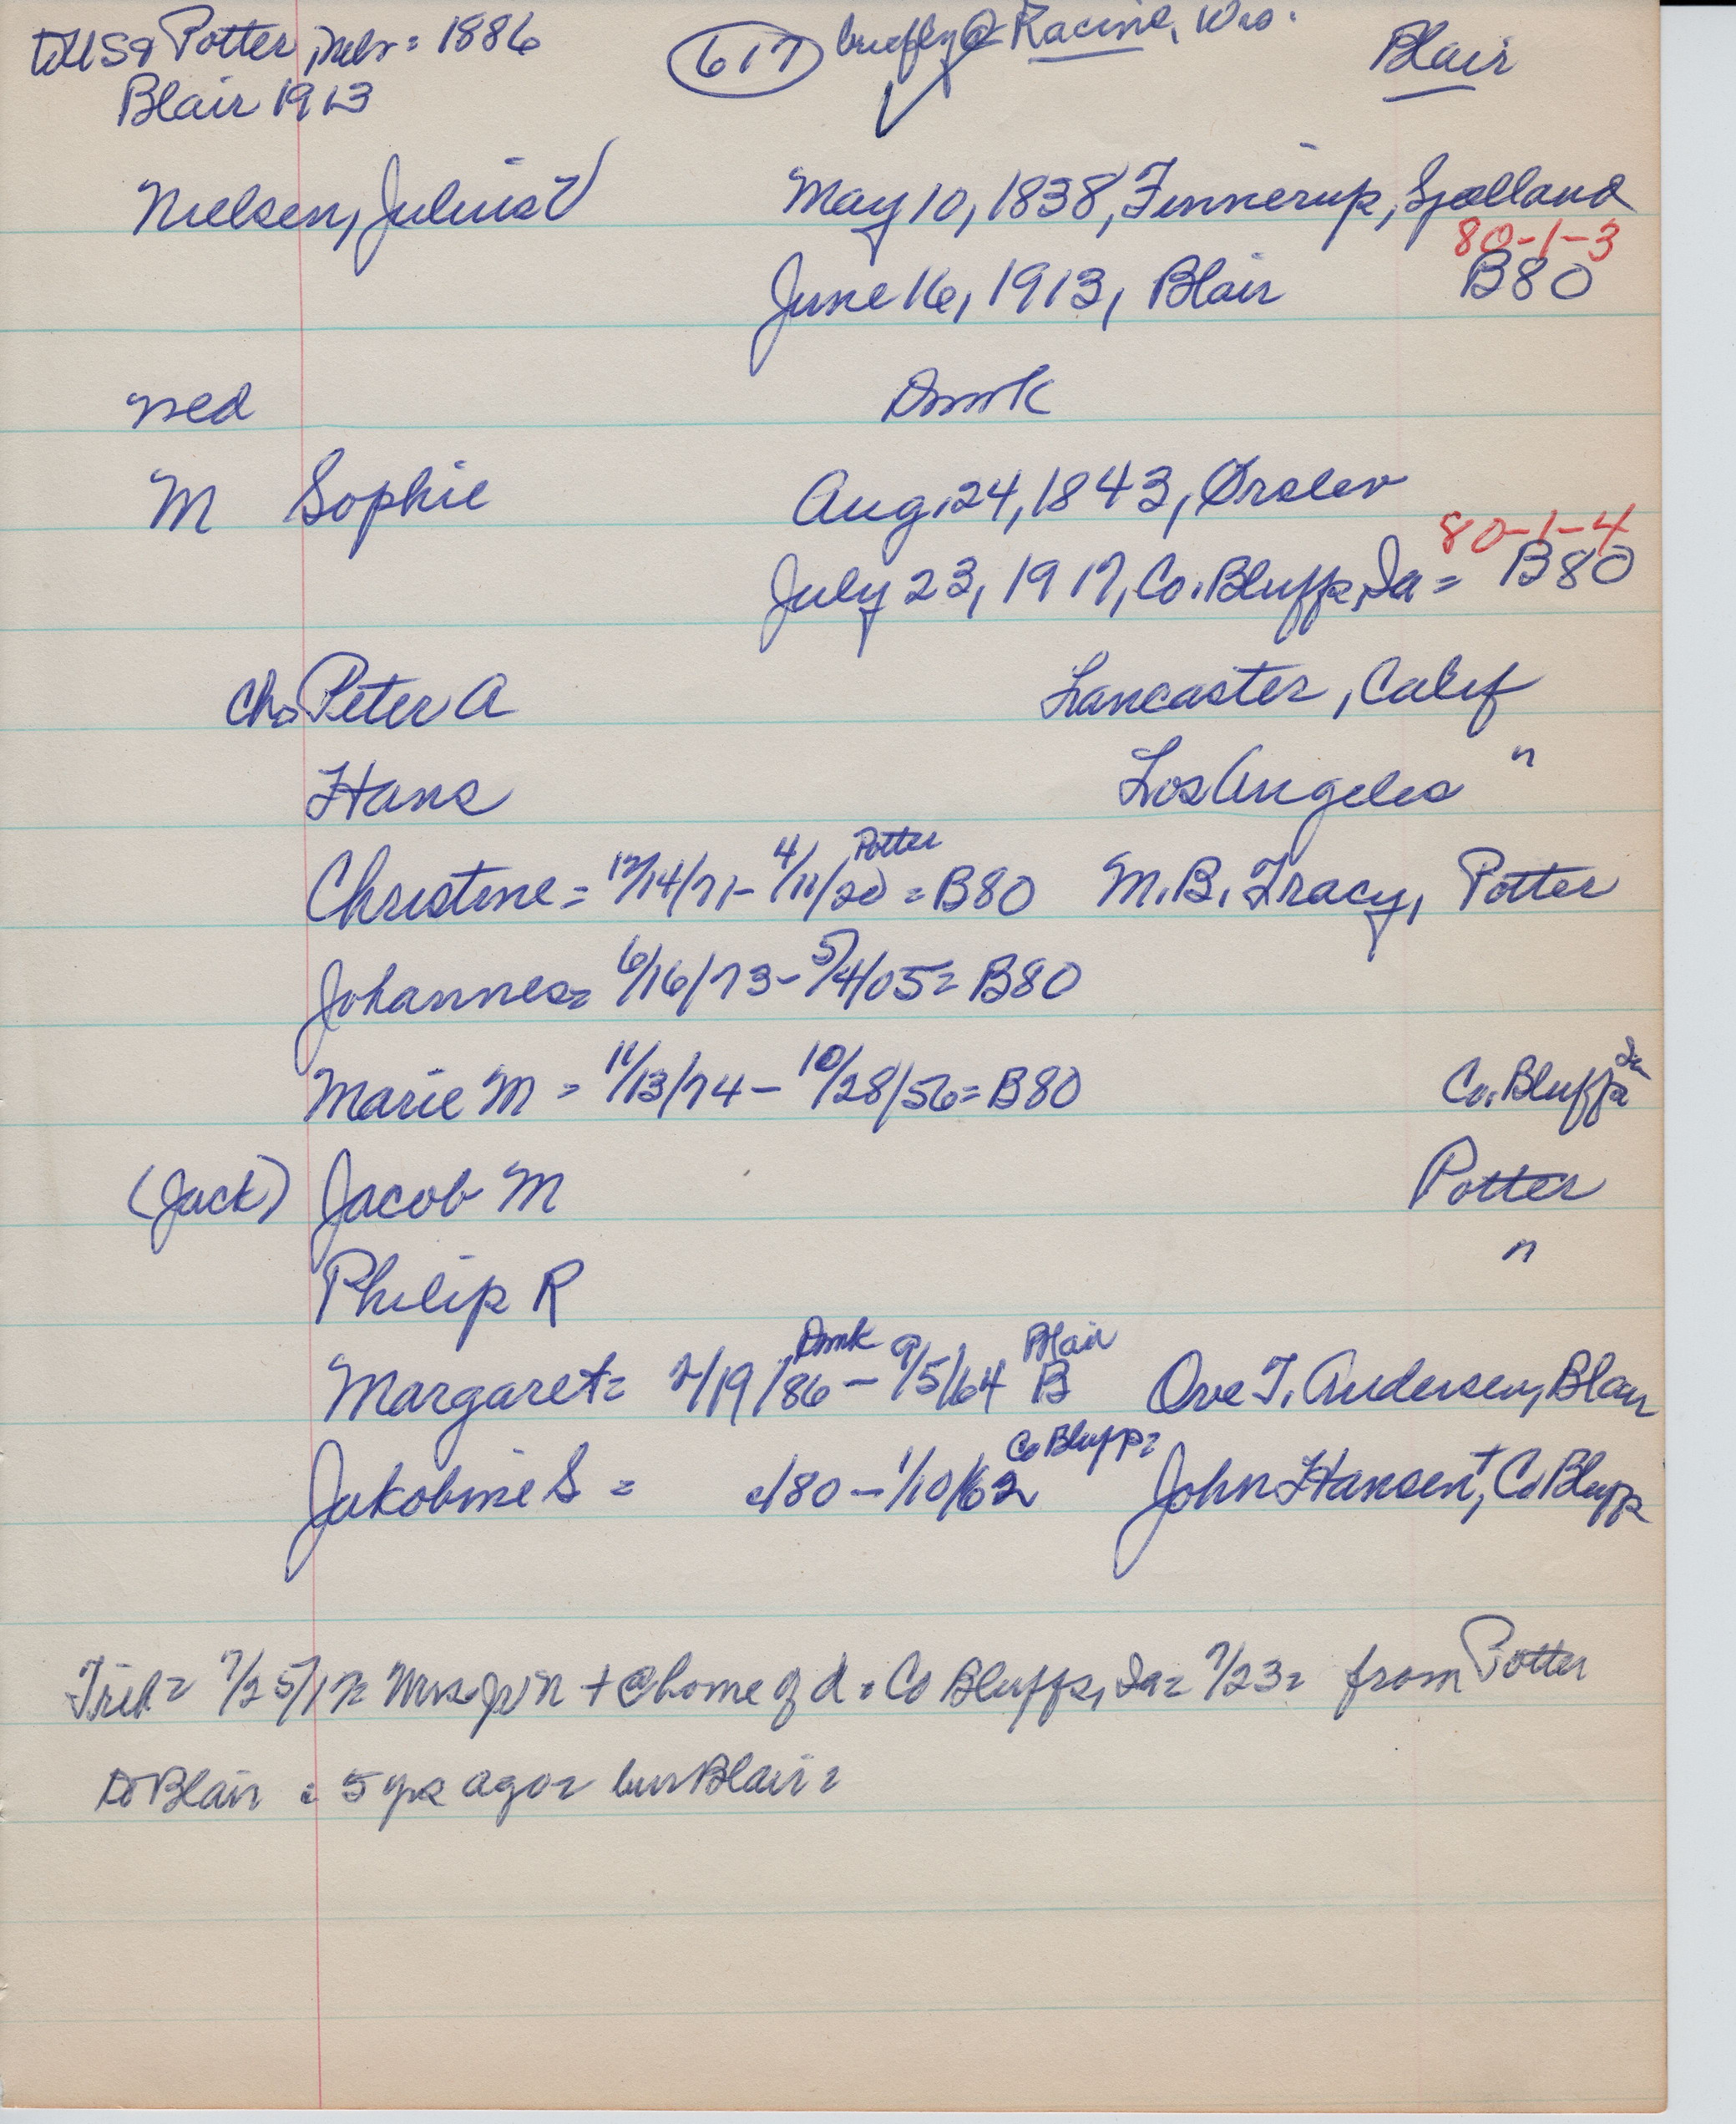 to US & Potter, Nebr = 1886 617 briefly @ Racine, Wis. Blair
Blair 1913
Nielsen, Julius V May 10, 1838, Finnerup, Sjælland
80-1-3
June 16, 1913, Blair B80
med Dmrk
M Sophie Aug. 24, 1843, Ørslev
80-1-4
July 23, 1917, Co. Bluffs, Ia = B80
Ch: Peter A Lancaster, Calif
Hans Los Angeles "
Christine = 12/14/71 - 4/11/20 Potter = B80 M. B. Tracy, Potter
Johannes = 6/16/73 - 5/4/05 = B80
Marie M = 11/13/74 - 10/28/56 = B80 Co. Bluffs Ia
(Jack) Jacob M Potter
Philip R "
Margaret = 2/19/86 Dmrk - 9/5/64 Blair B Ove T. Andersen, Blair
Jakobine S = c/80 - 1/10/62 Co Bluffs = John Hansen +, Co Bluffs
7/25/17 = Mrs + @ home of d = Co Bluffs, Ia = 7/23 = from Potter
to Blair = 5 yrs ago = bur Blair =